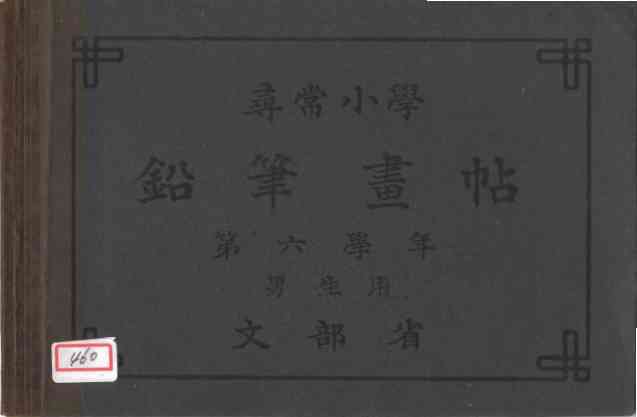 尋常小學
鉛筆畫帖
第六學年
男生用
文部省
460